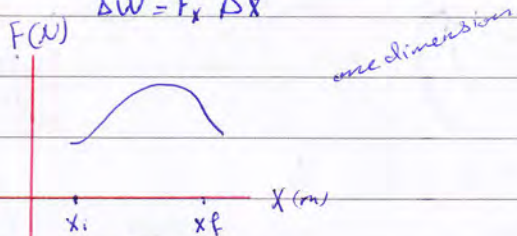 ΔW = Fx Δx
F(N)
one dimension
X (m)
xi xf